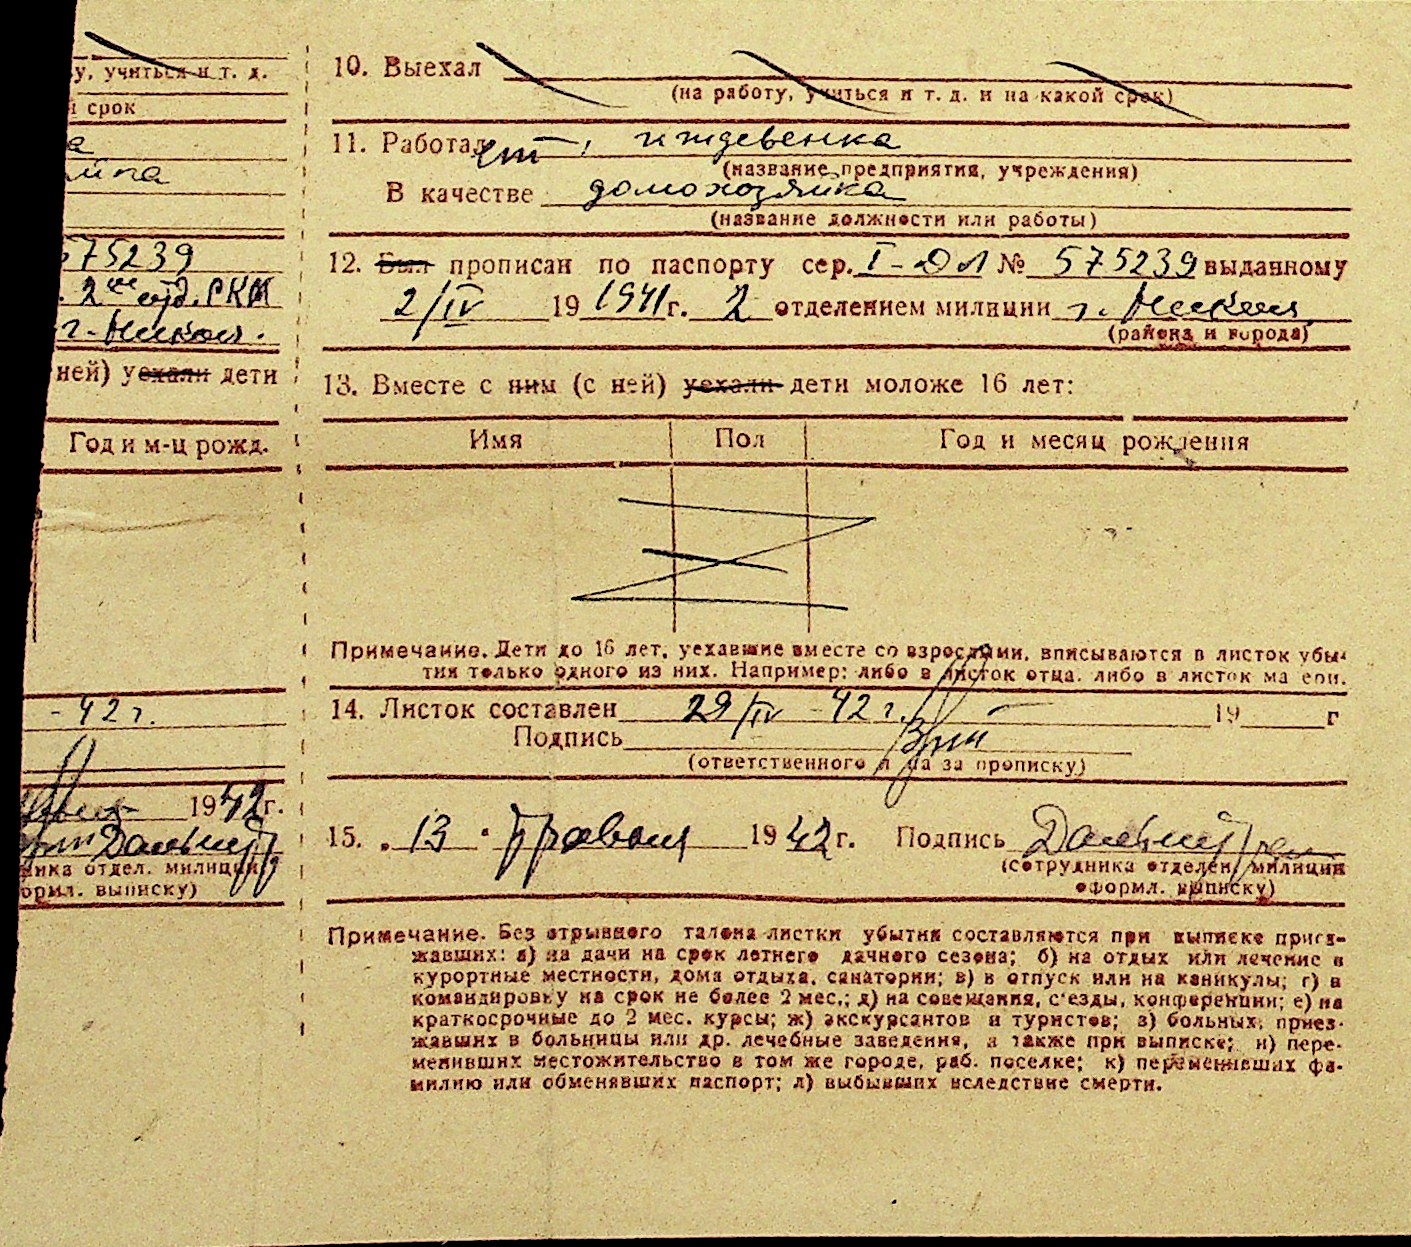 у, учиться и т. д.
срок
а
йка
575239
2ое отд. РКМ
г. Никол.
ней) уехали дети
Год и м-ц рожд.
-42 г.
1942г.
ника отдел. милиции
орм. выписку)
10. Выехал
(на работу, учиться и т. д. и на какой срок)
11. Работал иждевенка
(название предприятия, учреждения)
В качестве домохозяйка
(название должности или работы)
12. Был прописан по паспорту сер. I-ДЛ № 575239 выданному
2/IV 19 1941г. 2 отделением милиции г. Никол.
(района и города)
13. Вместе с ним (с ней) уехали дети моложе 16 лет:
Имя Пол Год и месяц рождения
Примечание. Дети до 16 лет, уехавшие вместе со взрослыми, вписываются в листок убы-
тия только одного из них. Например: либо в листок отца, либо в листок ма ери.
14. Листок составлен 29/IV -42 г. 19 г
Подпись
(ответственного л ца за прописку)
15. 13 · 1942г. Подпись
(сотрудника отделен. милиции
оформл. выписку)
Примечание. Без отрывного талона листки убытия составляются при выписке приез-
жавших: а) на дачи на срок летнего дачного сезона; б) на отдых или лечение в
курортные местности, дома отдыха, санатории; в) в отпуск или на каникулы; г) в
командировку на срок не более 2 мес.; д) на совещания, с'езды, конференции; е) на
краткосрочные до 2 мес. курсы; ж) экскурсантов и туристов; з) больных, приез-
жавших в больницы или др. лечебные заведения, а также при выписке; и) пере-
менивших местожительство в том же городе, раб. поселке; к) переменивших фа-
милию или обменявших паспорт; л) выбывших вследствие смерти.